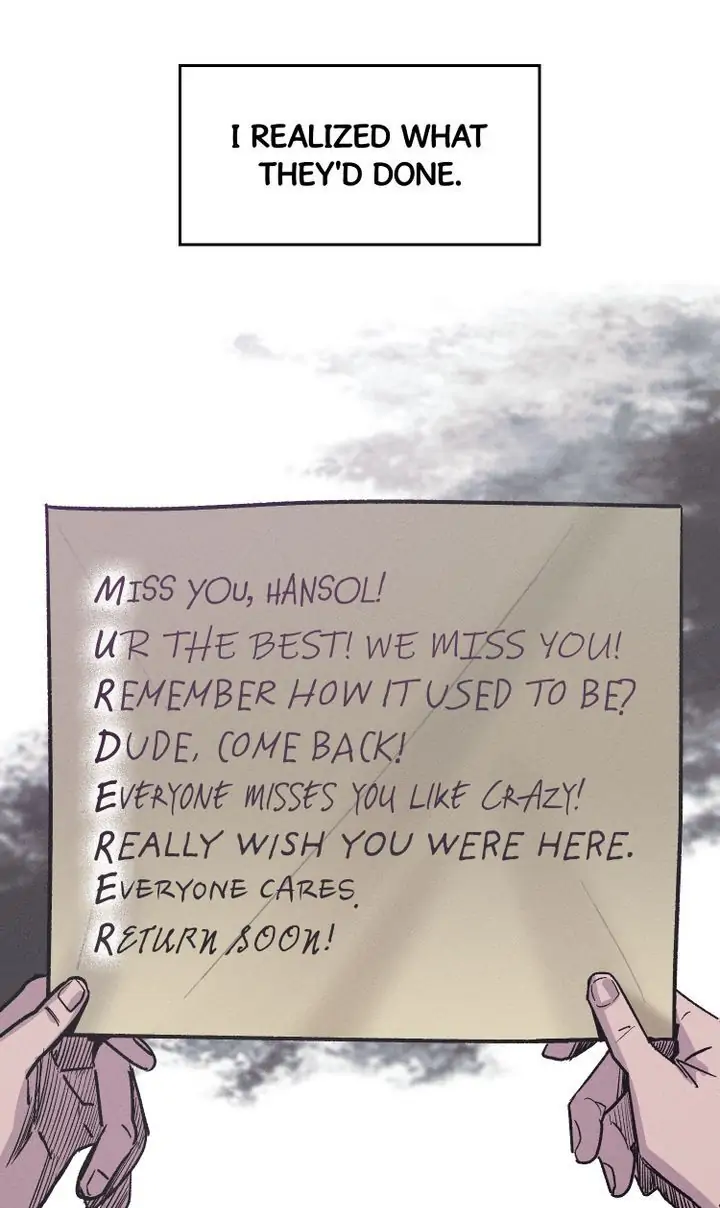 I REALIZED WHAT
THEY'D DONE.
MISS YOU, HANSOL!
UR THE BEST! WE MISS YOU!
REMEMBER HOW IT USED TO BE?
DUDE, COME BACK!
EVERYONE MISSES YOU LIKE CRAZY!
REALLY WISH YOU WERE HERE.
EVERYONE CARES.
RETURN SOON!